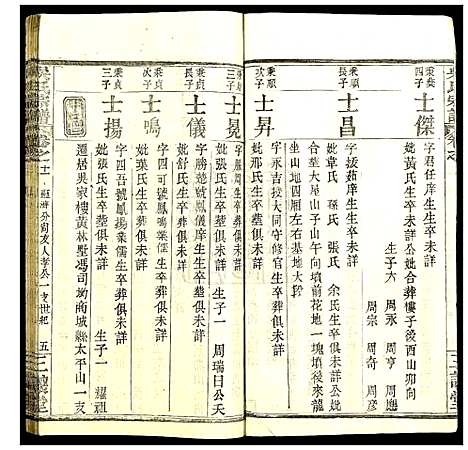 吳氏宗譜
秉奠四子
士傑
字君任庠生生卒未詳
妣黃氏生卒未詳公妣合葬樓子後酉山卯向
生子六
周永 周亨 周熊
周宗 周奇 周彥
秉順長子
士昌
字拔茹庠生生卒未詳
妣韋氏 孫氏 張氏 余氏生卒未詳公妣
合葬大屋山子山午向墳前花地一塊墳後來龍
坐山地四厢左右基地大段
秉順次子
士昇
字永吉撿大同守修官生卒葬俱未詳
妣那氏生卒葬俱未詳
三子
士冕
字 周庠生生卒葬俱未詳
秉貞長子
士儀
字勝 號鳳儀庠生生卒葬俱未詳
妣舒氏生卒葬俱未詳
生子一 周瑞曰公天
秉貞次子
士鳴
字四可號鳳鳴業儒生卒葬俱未詳
妣葉氏生卒葬俱未詳
秉貞三子
士揚
字四吾號鳳揚業儒生生卒葬俱未詳
妣張氏生卒葬俱未詳
生子一 耀祖
遷居吳家樓黃林墅馮司坳的城縣太平山一支
吳氏宗譜
卷之十二
友人孝公一支世紀
五
三讓堂